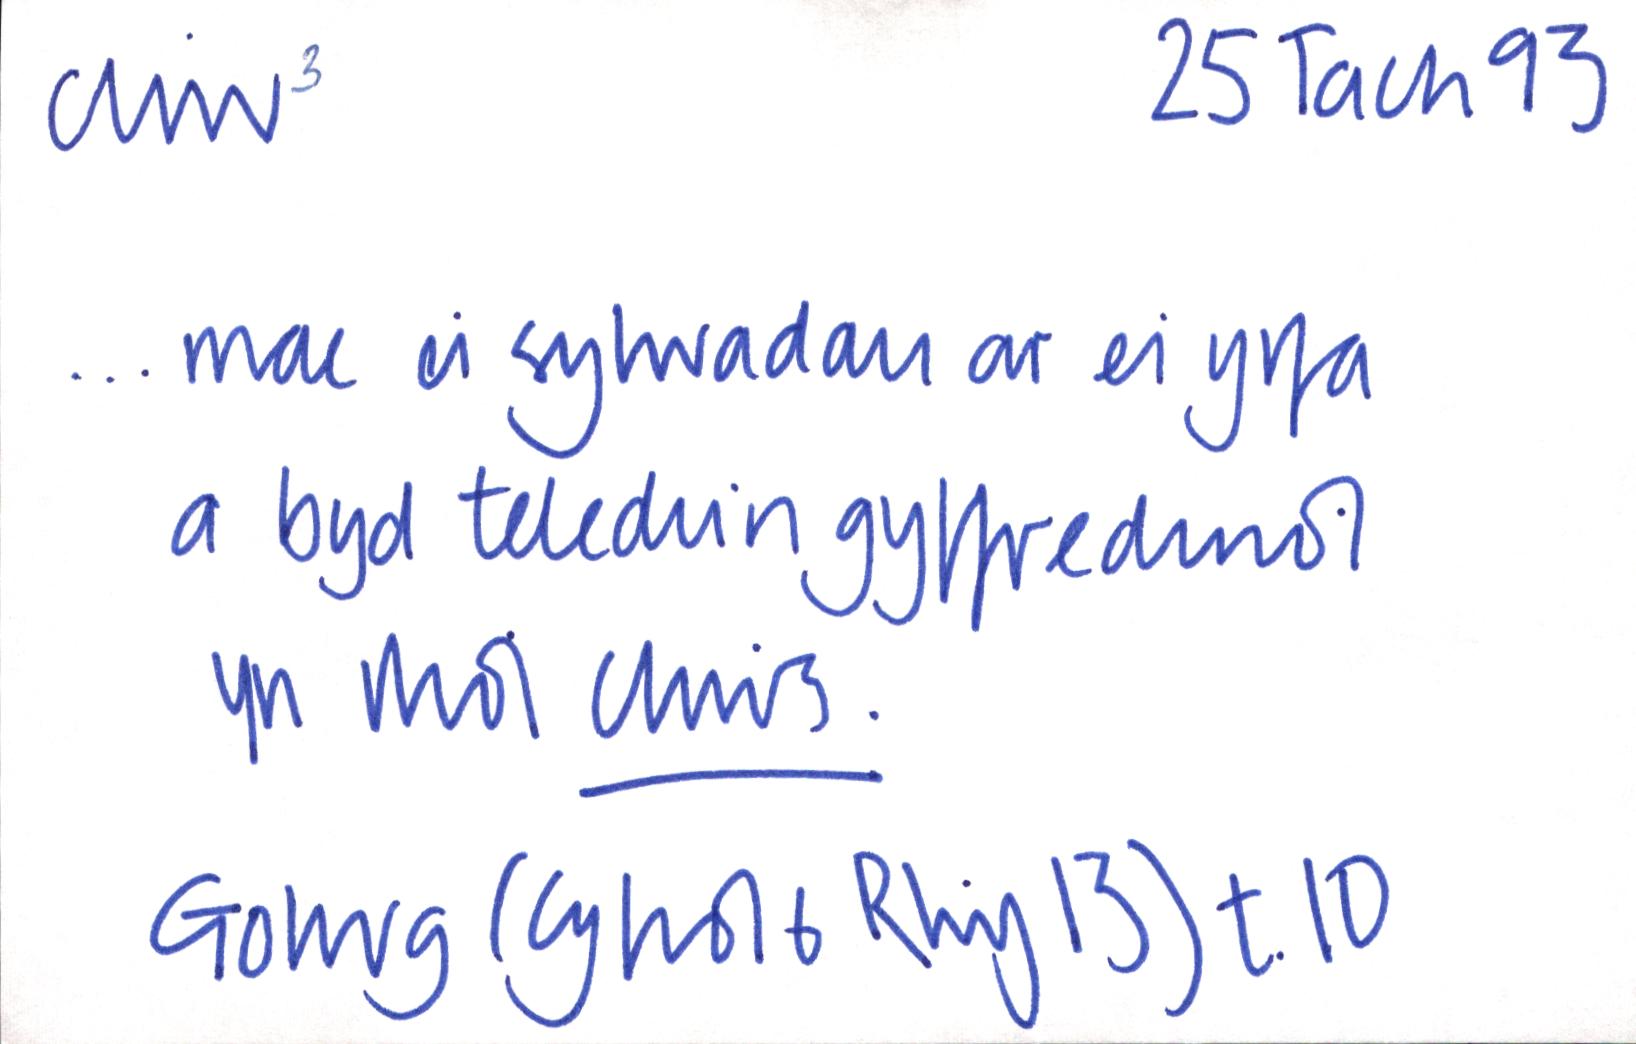 cliw³ 25 Tach 93
... mae ei sylwadau ar ei yrfa
a byd teledu'n gyffredinol
yn rhoi cliws.
Golwg (Cyfrol 6 Rhif 13) t. 10